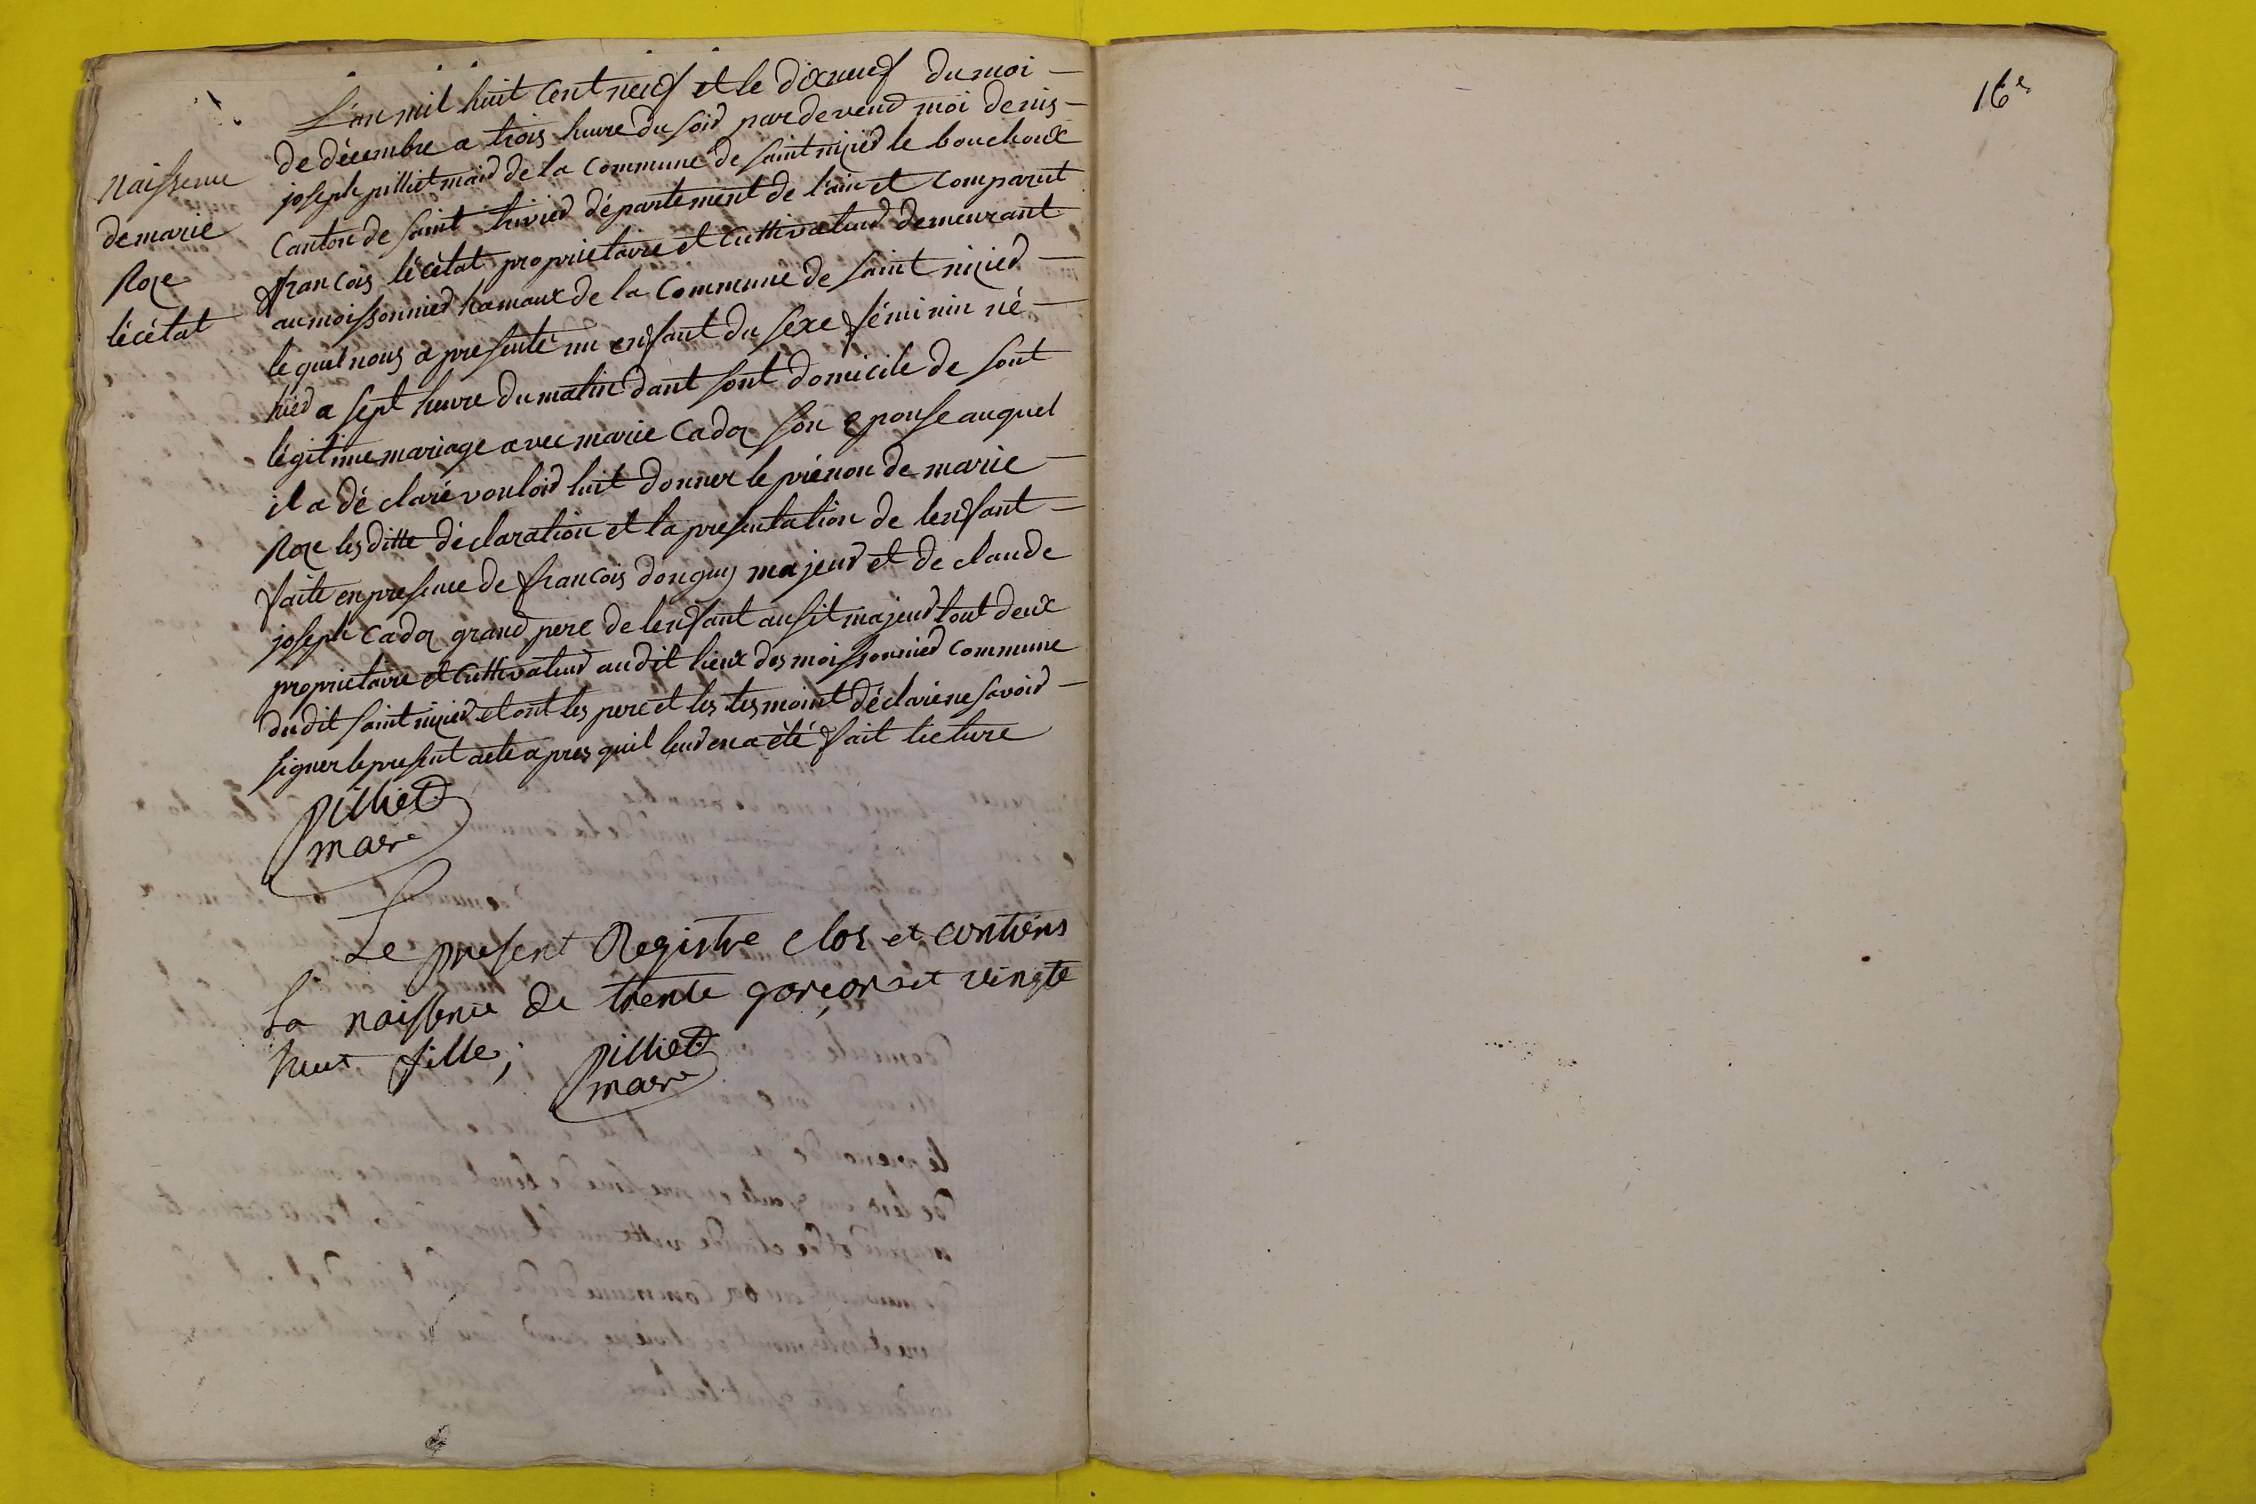 16e
naissence
de marie
Roze
lécétat
L'an mil huit cent neuf et le dixneuf du moi
de décembre a trois heure du soir pardevend moi denis
joseph pilliet mair de la commune de saint nizier le bouchoux
canton de saint trivier département de l'ain et comparut
françois lécétat proprietaire et cuttivateur demeurant
au moissonnier hamaux de la commune de saint nizier
le quel nous a presenté un enfant du sexe féminin né
hier a sept heure du matin dant sont domicile de sont
légitime mariage avec marie cadoz son epouse auquel
il a déclaré vouloir luit donner le prénon de marie
Roze les ditte déclaration et la presentation de lenfant
faite en presence de françois donguy majeur et de claude
joseph cadoz grand pere de lenfant ausit majeur tout deux
proprietaire et cuttivateur audit lieux des moissonnier commune
dudit saint nizier et ont les pere et les tesmoint déclaré ne savoir
signer le present acte apres quil leur en a été fait lecture
pilliet
maire
Le present Registre clos et contiens
La naissence de trente garçon et vingte
huit fille;
pilliet
maire